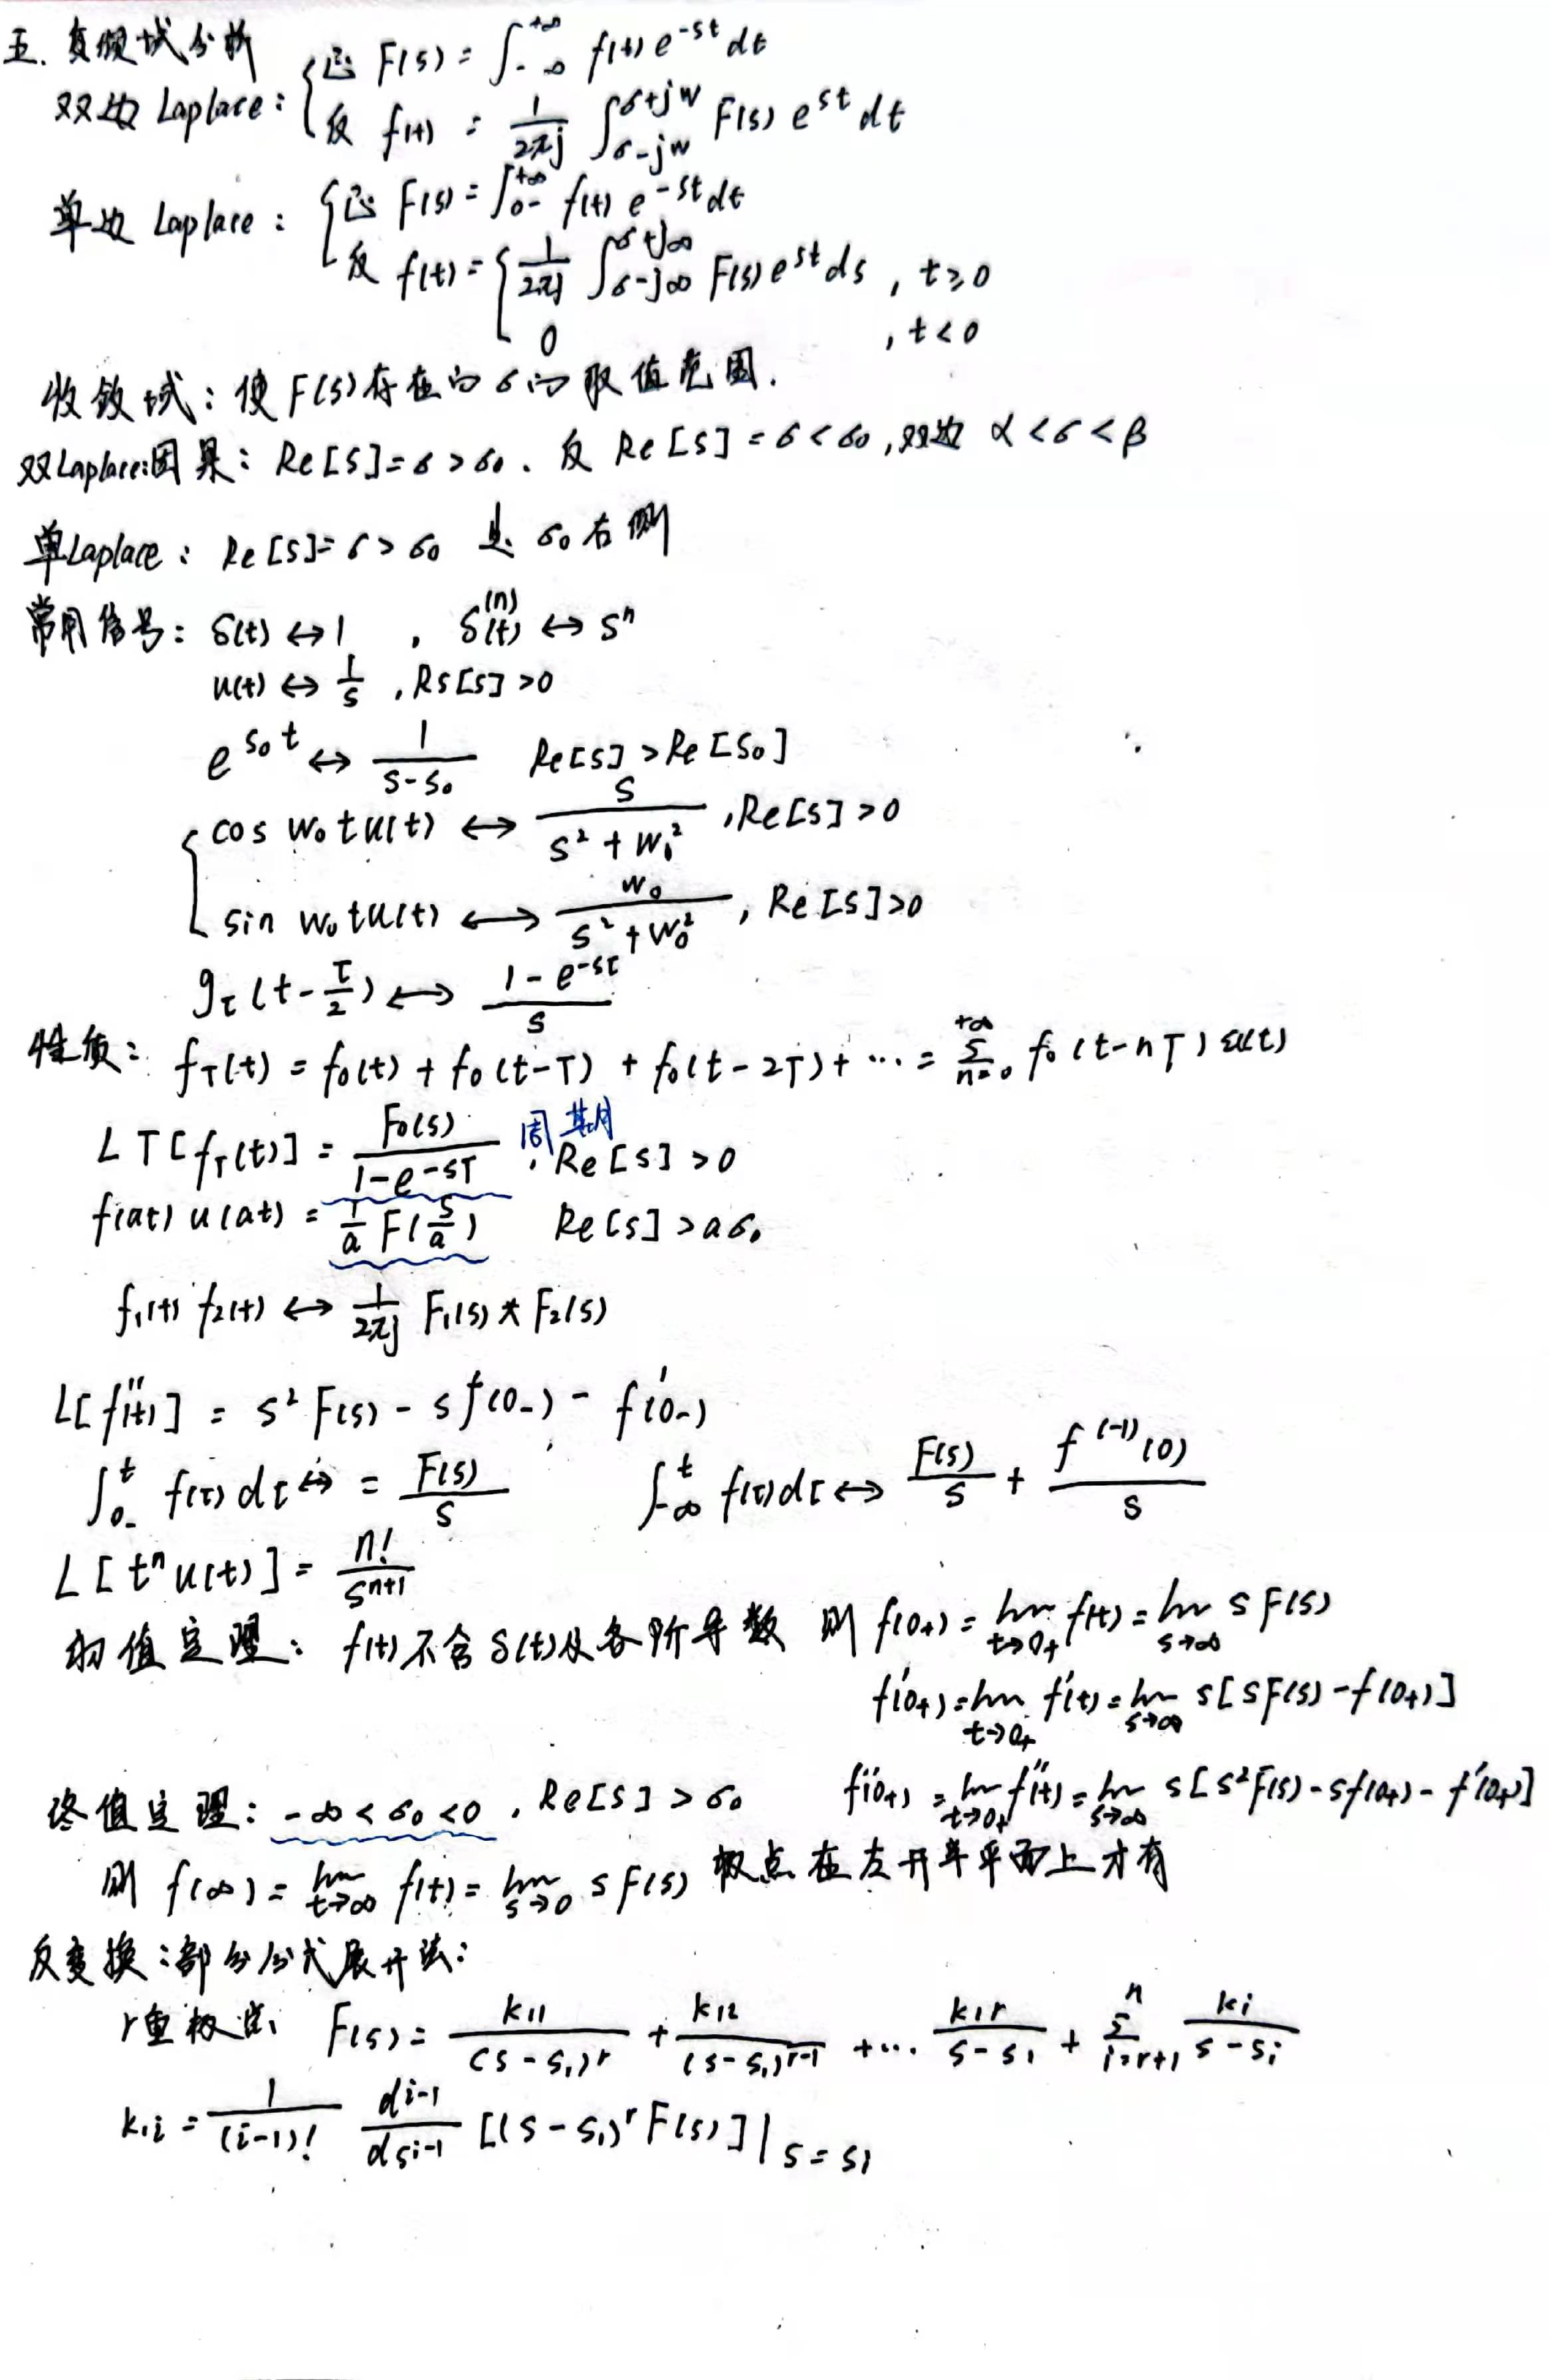 五. 复频域分析
双边 Laplace: { 正 F(s) = ∫_{-∞}^{+∞} f(t) e^{-st} dt
反 f(t) = \frac{1}{2πj} ∫_{σ-jw}^{σ+jw} F(s) e^{st} dt
单边 Laplace: { 正 F(s) = ∫_{0-}^{+∞} f(t) e^{-st} dt
反 f(t) = { \frac{1}{2πj} ∫_{σ-j∞}^{σ+j∞} F(s) e^{st} ds , t≥0
0 , t<0
收敛域: 使F(s)存在的σ的取值范围.
双Laplace:因果: Re[s]=σ>σ₀. 反 Re[s]=σ<σ₀, 双边 α<σ<β
单Laplace: Re[s]=σ>σ₀ 是 σ₀右侧
常用信号: δ(t)↔1 , δ^{(n)}(t)↔s^n
u(t)↔\frac{1}{s} , Rs[s]>0
e^{s₀t}↔\frac{1}{s-s₀} Re[s]>Re[s₀]
{ cos w₀tu(t) ↔ \frac{s}{s²+w₀²} , Re[s]>0
sin w₀tu(t) ↔ \frac{w₀}{s²+w₀²} , Re[s]>0
g_τ(t-\frac{τ}{2}) ↔ \frac{1-e^{-sτ}}{s}
性质: f_T(t) = f₀(t) + f₀(t-T) + f₀(t-2T) + ··· = \sum_{n=0}^{+∞} f₀(t-nT) ε(t)
LT[f_T(t)] = \frac{F₀(s)}{1-e^{-sT}} 周期 , Re[s]>0
f(at)u(at) = \frac{1}{a} F(\frac{s}{a}) Re[s]>aσ₀
f₁(t) f₂(t) ↔ \frac{1}{2πj} F₁(s) * F₂(s)
L[f''(t)] = s²F(s) - sf(0₋) - f'(0₋)
∫_{0₋}^{t} f(τ)dτ ↔ = \frac{F(s)}{s} ∫_{-∞}^{t} f(τ)dτ ↔ \frac{F(s)}{s} + \frac{f^{(-1)}(0)}{s}
L[t^n u(t)] = \frac{n!}{s^{n+1}}
初值定理: f(t)不含δ(t)及各阶导数 则 f(0₊) = \lim_{t→0₊} f(t) = \lim_{s→∞} sF(s)
f'(0₊) = \lim_{t→0₊} f'(t) = \lim_{s→∞} s[sF(s)-f(0₊)]
f''(0₊) = \lim_{t→0₊} f''(t) = \lim_{s→∞} s[s²F(s)-sf(0₊)-f'(0₊)]
终值定理: -∞<σ₀<0 , Re[s]>σ₀
则 f(∞) = \lim_{t→∞} f(t) = \lim_{s→0} sF(s) 极点在左开半平面上才有
反变换:部分分式展开法:
r重极点 F(s) = \frac{k₁₁}{(s-s₁)^r} + \frac{k₁₂}{(s-s₁)^{r-1}} +··· \frac{k_{1r}}{s-s₁} + \sum_{i=r+1}^{n} \frac{k_i}{s-s_i}
k_{1i} = \frac{1}{(i-1)!} \frac{d^{i-1}}{ds^{i-1}} [(s-s₁)^r F(s)]|_{s=s₁}